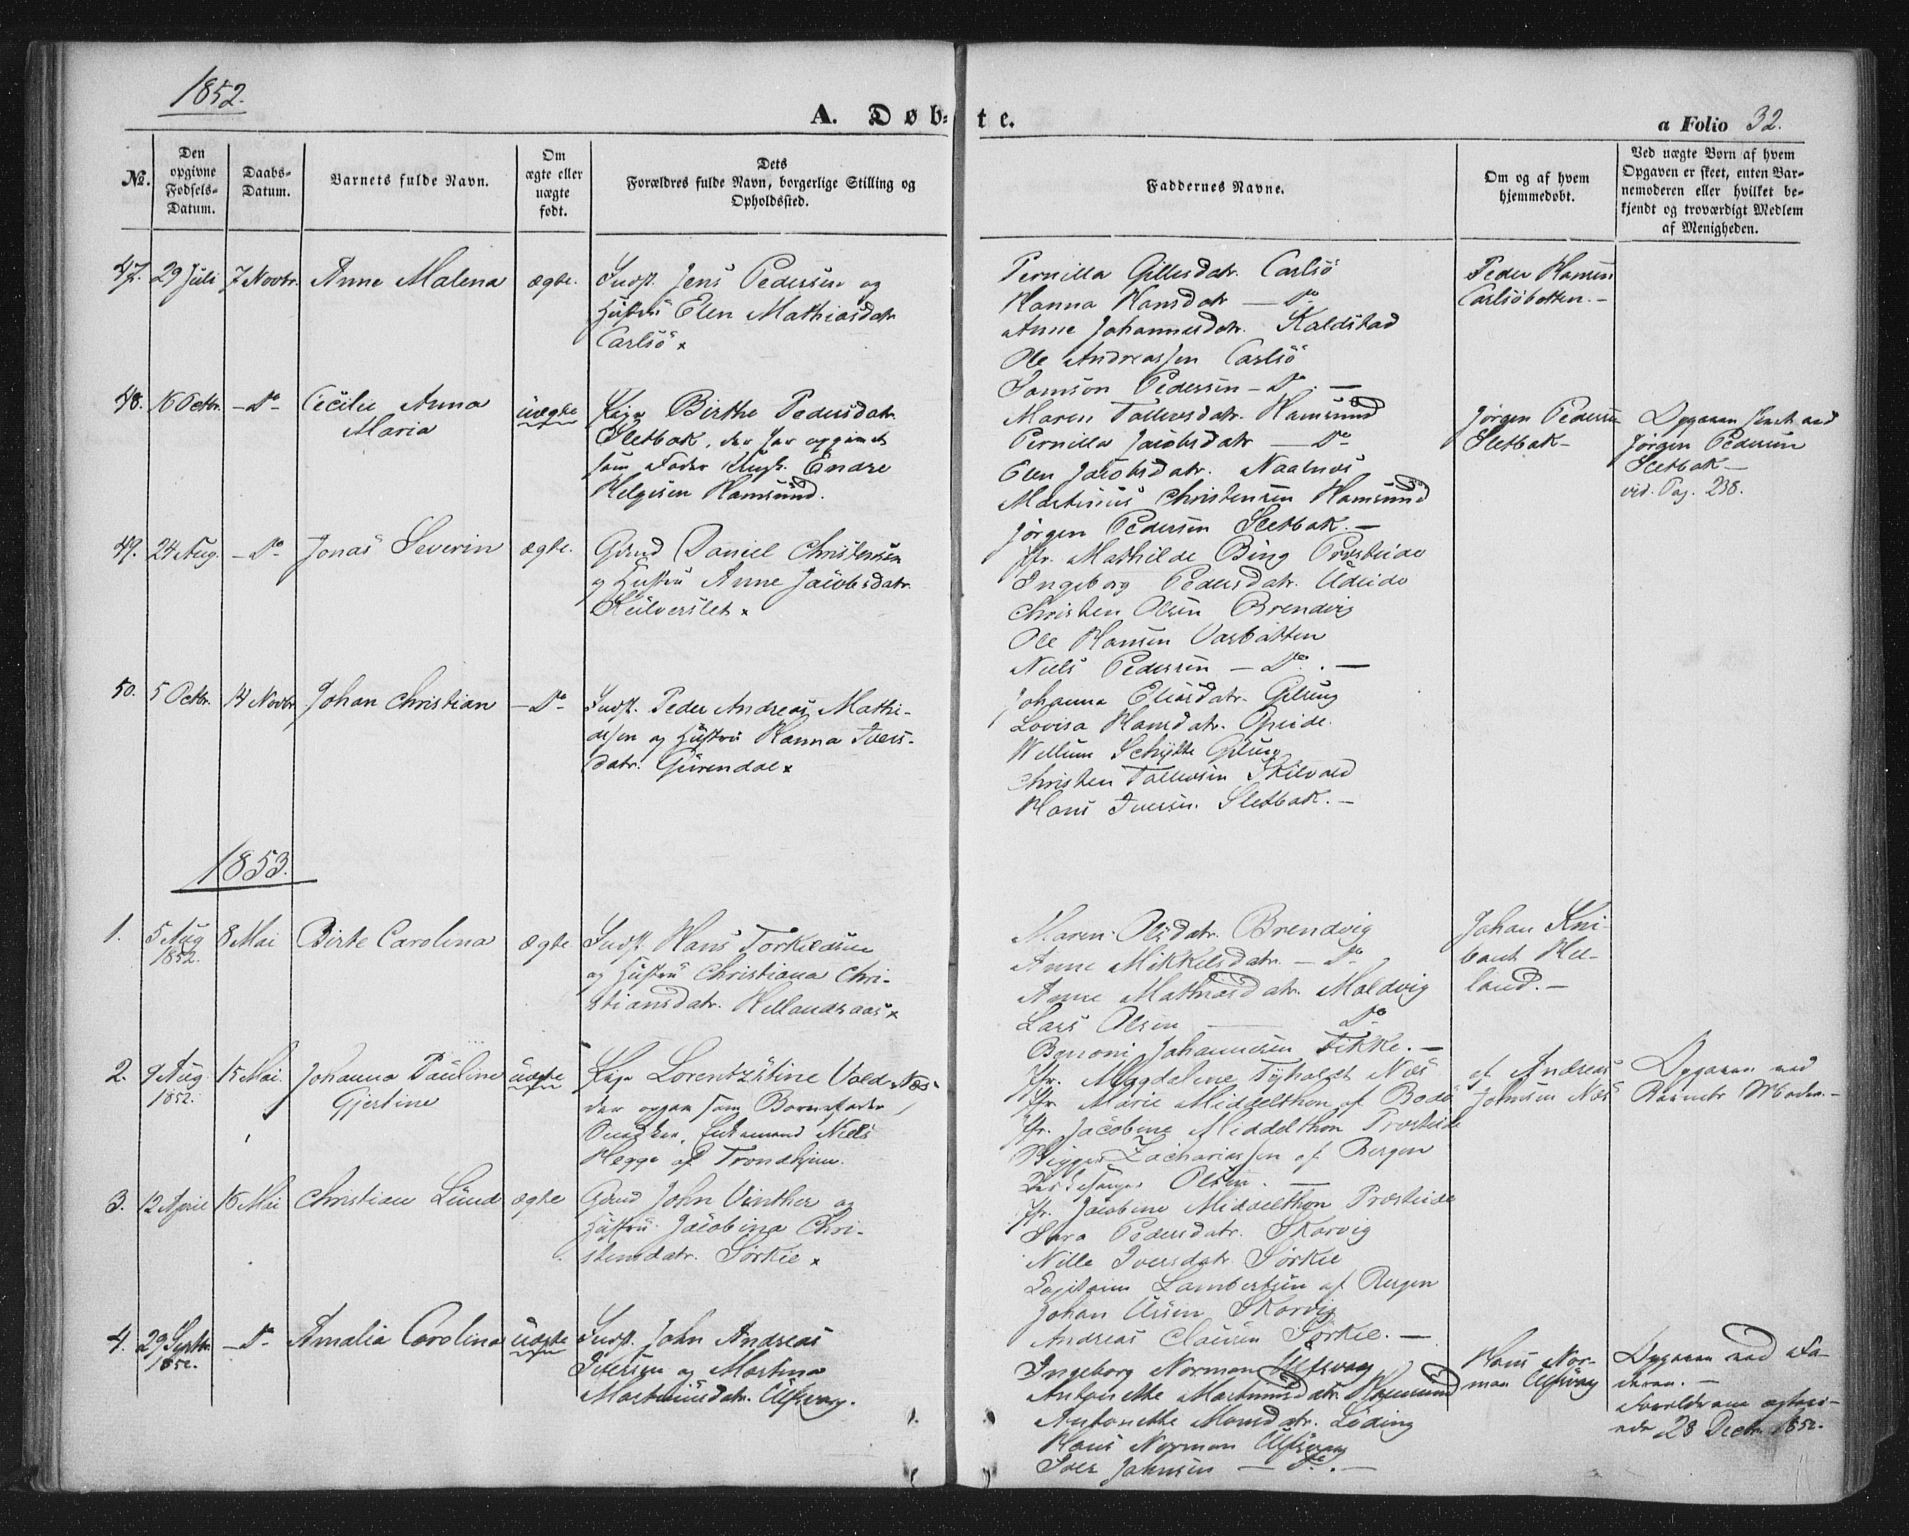 1852.
A. Døb-te.
a Folio 32.
No.
Den opgivne Fødsels-Datum.
Daabs-Datum.
Barnets fulde Navn.
Om ægte eller uægte født.
Dets Forældres fulde Navn, borgerlige Stilling og Opholdssted.
Faddernes Navne.
Om og af hvem hjemmedøbt.
Ved uægte Børn af hvem Opgaven er skeet, enten Barnemoderen eller hvilket bekjendt og troværdigt Medlem af Menigheden.
47. 29 Juli 7 Novbr. Anne Malena ægte.
Indst. Jens Pedersen og
Hustru Elen Mathiasdatr.
Carlsö x
Pernilla Gillesdatr. Carlsö
Hanna Hansdatr — Do
Anne Johannesdatr. Kaldstad
Ole Andreassen Carlsö
Samson Pedersen — Do. —
Peder Hansen
Carlsöbotten. —
48. 16 Octbr. — Do — Cecilie Anna
Maria
uægte
Pige Birthe Pedersdatr.
Sletbak, der har opgivet
som Fader Ungk. Endre
Helgesen Hamsund.
Maren Tollevsdatr. Hamsund
Pernilla Jacobsdatr — Do
Elen Jacobsdatr. Naalnes
Martinus Christensen Hamsund
Jörgen Pedersen Sletbak. —
Jörgen Pedersen
Sletbak —
Opgaven skeet ved
Jörgen Pedersen
Sletbak —
vid. Pag. 238.
49. 24 Aug. — Do — Jonas Severin ægte.
Gmd Daniel Christensen
og Hustru Anne Jacobsdatr.
Kulverslet x
Jfr. Mathilde Bing Presteide
Ingeborg Pedersdatr. Udeide
Christen Olsen Brendvig
Ole Hansen Varbotten
Niels Pedersen — Do. —
50. 5 Octbr. 14 Novbr. Johan Christian — Do —
Indst. Peder Andreas Mathi-
sen og Hustru Hanna Ivers-
datr. Gürendal x
Johanna Eliasdatr.
Lovisa Hansdatr. Opeide.
Willum Schytte
Christen Tollevsen Skilvald
Hans Iversen Sletbak. —
1853.
1. 5 Aug 1852. 8 Mai Birte Carolina ægte
Indst. Hans Torkildsen
og Hustru Christiana Chri-
stiansdatr. Hellandsaas x
Maren Olsdatr. Brendvig
Anne Mikkelsdatr. — Do
Anne Mathiasdatr. Moldvig
Lars Olsen — Do
Benoni Johannesen Fikke. —
Johan Kni-
bant Hel-
land. —
2. 9 Aug. 1852. 15 Mai. Johanna Pauline
Gjertine
uægte
Pige Lorentzstine Vold Næs
der opgav som Barnefader
Enkemand Niels
Hegge af Trondhjem.
Jfr. Magdalene Tyholdt Næs
Jfr. Marie Middelthon af Bodö
Jfr. Jacobine Middelthon Presteide
Zachariassen af Bergen
Olsen. —
af Andreas
Johnsen Næs
Opgaven ved
Barnets Moder. —
3. 12 April 16 Mai Christian Lund ægte
Gmd John Vinther og
Hustru Jacobina Chri-
stensdatr. Sörkil x
Jfr. Jacobine Middelthon Presteide
Sara Pedersdatr. Skarvig
Nille Iversdatr. Sörkil
Capitain Lambertsen af Bergen
Johan Olsen Skarvig
Andreas Clausen Sörkil. —
4. 29 Septbr. 1852. — Do — Amalia Carolina uægte
Indst. John Andreas
Petersen og Martina
Martinusdatr. Ulfsvaag.
Ingeborg Norman Ulfsvaag
Antonette Martinusdatr. Hamsund
Antonette Monsdatr. Löding
Hans Norman Ulfsvaag
Iver Johnsen — Do. —
Hans Nor-
man Ulfsvaag
Opgaven ved Fa-
deren. —
Forældrene
28 Decbr. 1852.